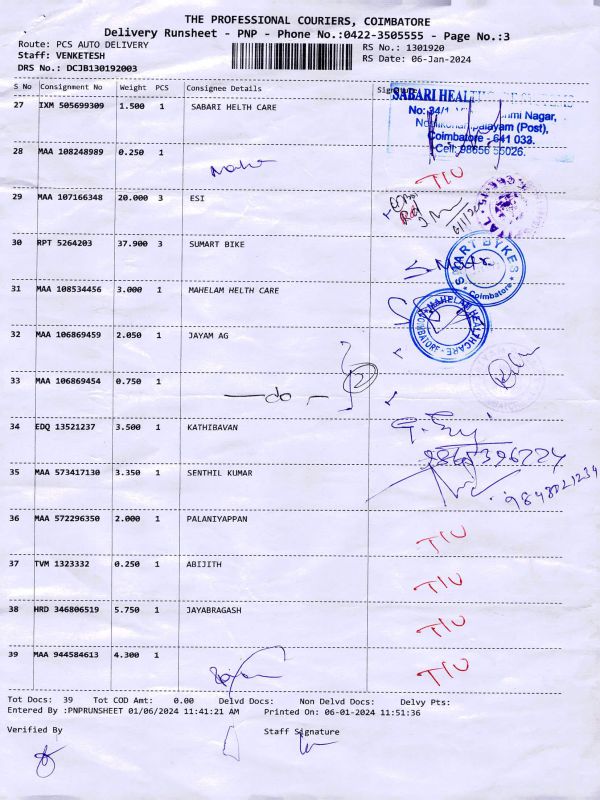 THE PROFESSIONAL COURIERS, COIMBATORE
Delivery Runsheet - PNP - Phone No.:0422-3505555 - Page No.:3
Route: PCS AUTO DELIVERY
RS No.: 1301920
Staff: VENKETESH
RS Date: 06-Jan-2024
DRS No.: DCJB130192003
S No Consignment No Weight PCS Consignee Details Signature
27 IXM 505699309 1.500 1 SABARI HELTH CARE
SABARI HEAL
No: 34/1 Nagar,
palayam (Post),
Coimbatore - 641 033.
Cell: 98656 55026.
28 MAA 108248989 0.250 1
TIU
29 MAA 107166348 20.000 3 ESI
30 RPT 5264203 37.900 3 SUMART BIKE
SMART BYKES
* Coimbatore *
31 MAA 108534456 3.000 1 MAHELAM HELTH CARE
MAHELAM HEALTHCARE
COIMBATORE
32 MAA 106869459 2.050 1 JAYAM AG
33 MAA 106869454 0.750 1
-do- 2
34 EDQ 13521237 3.500 1 KATHIBAVAN
35 MAA 573417130 3.350 1 SENTHIL KUMAR
9848021234
36 MAA 572296350 2.000 1 PALANIYAPPAN
TIU
37 TVM 1323332 0.250 1 ABIJITH
TIU
38 HRD 346806519 5.750 1 JAYABRAGASH
TIU
39 MAA 944584613 4.300 1
TIU
Tot Docs: 39 Tot COD Amt: 0.00 Delvd Docs: Non Delvd Docs: Delvy Pts:
Entered By :PNPRUNSHEET 01/06/2024 11:41:21 AM Printed On: 06-01-2024 11:51:36
Verified By Staff Signature